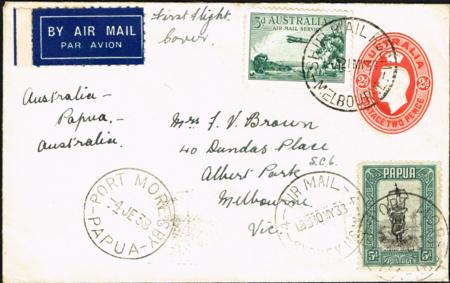 BY AIR MAIL
PAR AVION
First flight
Cover
3d AUSTRALIA
AIR MAIL SERVICE
AIR MAIL
MELBOURNE
AUSTRALIA
POSTAGE TWO PENCE
Australia-
Papua.-
Australia.
Mrs F. V. Brown
40 Dundas Place
S.C.6.
Albert Park
Melbourne
Vic.
PORT MORE
4JE38
PAPUA
AIR MAIL
PAPUA
POSTAGE
5d 5d